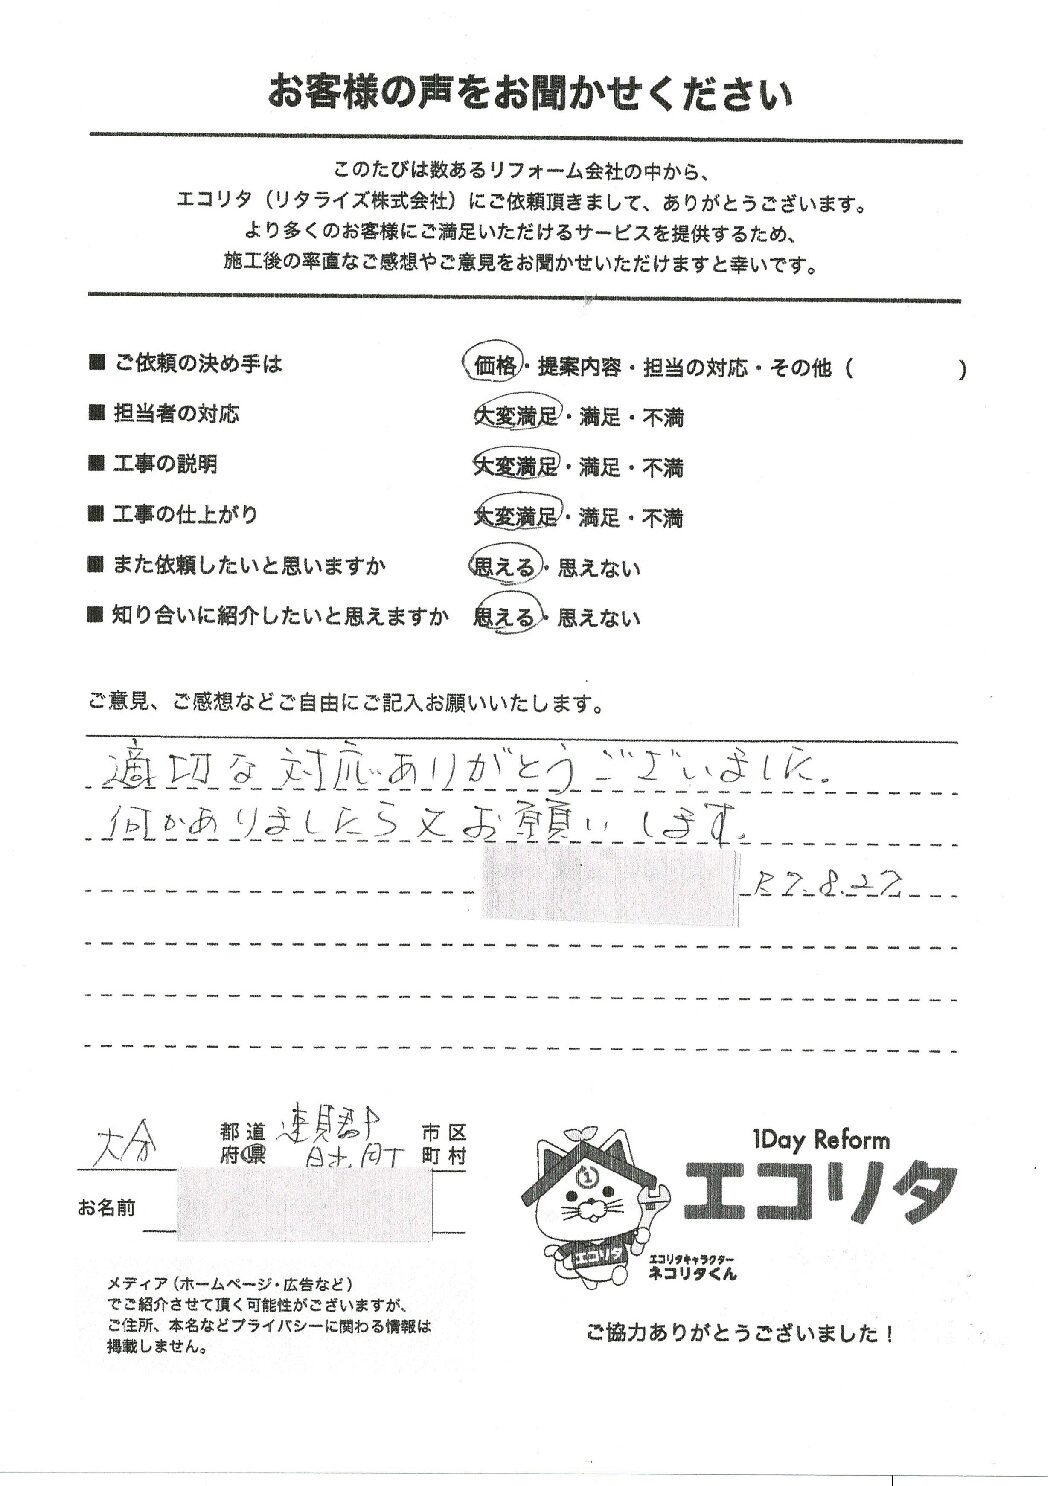 お客様の声をお聞かせください
このたびは数あるリフォーム会社の中から、
エコリタ（リタライズ株式会社）にご依頼頂きまして、ありがとうございます。
より多くのお客様にご満足いただけるサービスを提供するため、
施工後の率直なご感想やご意見をお聞かせいただけますと幸いです。
■ ご依頼の決め手は 価格・提案内容・担当の対応・その他（ ）
■ 担当者の対応 大変満足・満足・不満
■ 工事の説明 大変満足・満足・不満
■ 工事の仕上がり 大変満足・満足・不満
■ また依頼したいと思いますか 思える・思えない
■ 知り合いに紹介したいと思えますか 思える・思えない
ご意見、ご感想などご自由にご記入お願いいたします。
適切な対応ありがとうございました。
何かありましたら又お願いします。
R7.8.27
大分 都道府県 速見郡日出町 市区町村
お名前
メディア（ホームページ・広告など）
でご紹介させて頂く可能性がございますが、
ご住所、本名などプライバシーに関わる情報は
掲載しません。
1Day Reform
エコリタ
1
エコリタ
エコリタキャラクター
ネコリタくん
ご協力ありがとうございました！